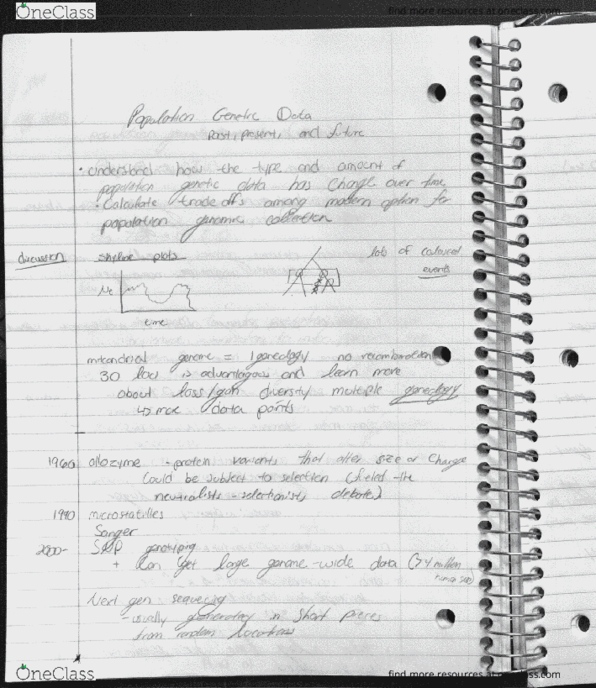 OneClass
find more resources at oneclass.com
Population Genetic Data
Past, present, and future
• understand how the type and amount of
population genetic data has change over time
• Calculate trade offs among modern option for
population genomic
discussion
skyline plots
lots of
events
Ne
time
genome = 1 geneology no recombination
30 loci is advantageous and learn more
about loss/gain diversity multiple geneology
↳ more data points
1960s allozyme - protein variants that alter size or charge
Could be subject to selection (fueled the
neutralists - selectionists debate)
1990 microsatilles
Sanger
2000- SNP genotyping
+ Can get large genome-wide data
Next gen sequecing
- usually in short pieces
from random locations
OneClass
find more resources at oneclass.com